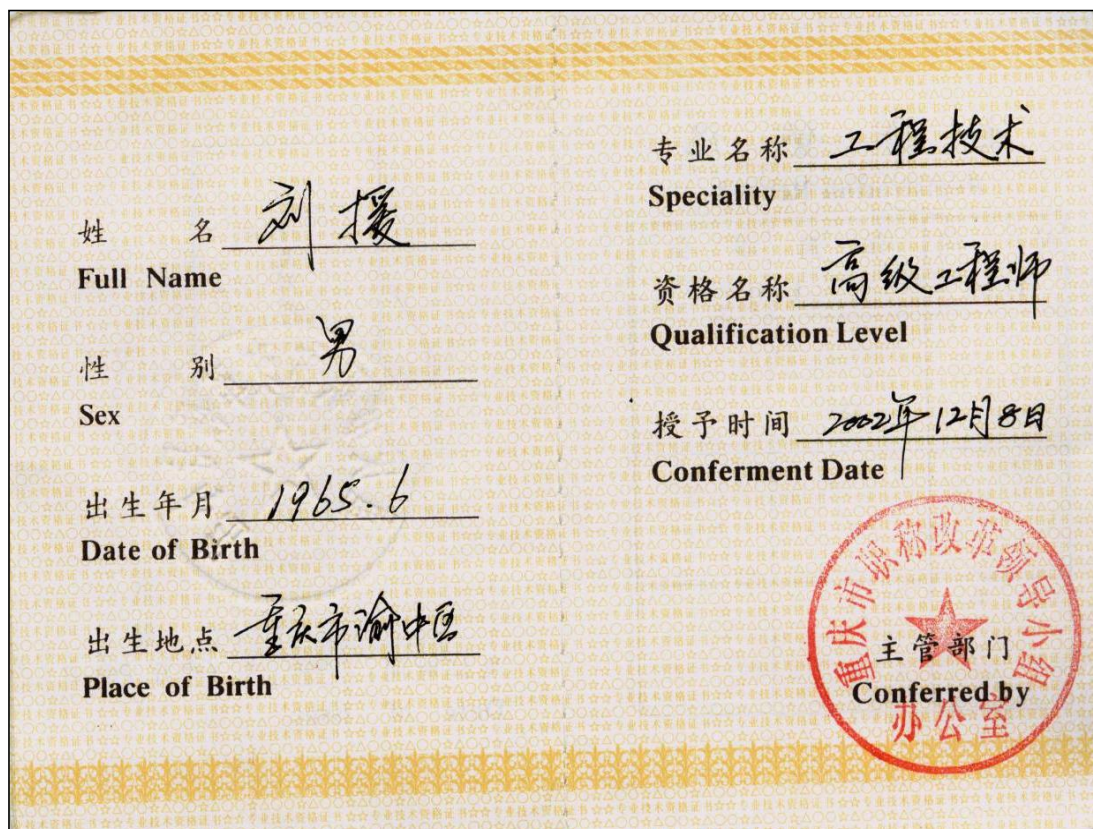 姓 名 刘援
Full Name
性 别 男
Sex
出生年月 1965.6
Date of Birth
出生地点 重庆市渝中区
Place of Birth
专业名称 工程技术
Speciality
资格名称 高级工程师
Qualification Level
授予时间 2002年12月8日
Conferment Date
重庆市职称改革领导小组
主管部门
Conferred by
办公室